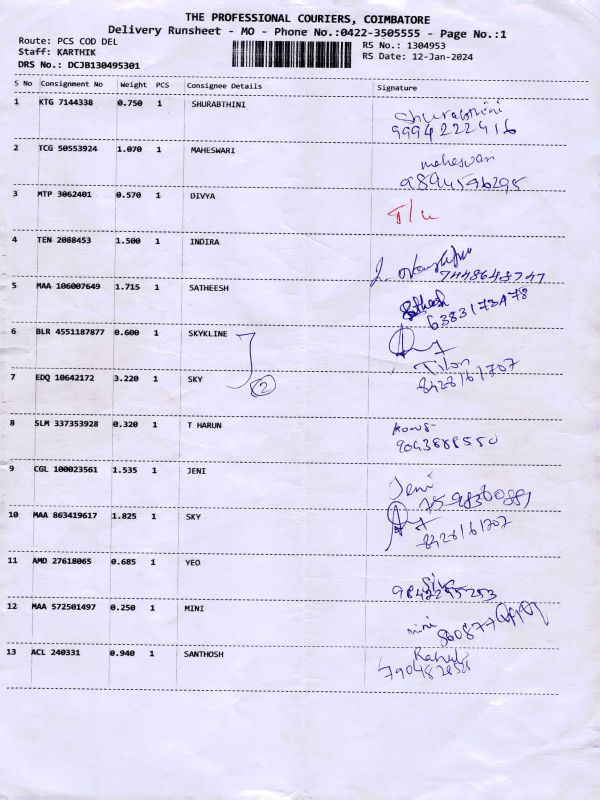 THE PROFESSIONAL COURIERS, COIMBATORE
Delivery Runsheet - MO - Phone No.:0422-3505555 - Page No.:1
Route: PCS COD DEL
Staff: KARTHIK
DRS No.: DCJB130495301
RS No.: 1304953
RS Date: 12-Jan-2024
S No Consignment No Weight PCS Consignee Details Signature
1 KTG 7144338 0.750 1 SHURABTHINI Shurabthini
9994222416
2 TCG 50553924 1.070 1 MAHESWARI maheswari
9894596295
3 MTP 3062401 0.570 1 DIVYA
4 TEN 2088453 1.500 1 INDIRA
5 MAA 106007649 1.715 1 SATHEESH Satheesh
6383173478
6 BLR 4551187877 0.600 1 SKYKLINE
8428161707
7 EDQ 10642172 3.220 1 SKY
2
8 SLM 337353928 0.320 1 T HARUN
9 CGL 100023561 1.535 1 JENI Jeni
10 MAA 863419617 1.825 1 SKY
8428161707
11 AMD 27618065 0.685 1 YEO
12 MAA 572501497 0.250 1 MINI mini
13 ACL 240331 0.940 1 SANTHOSH Rahul